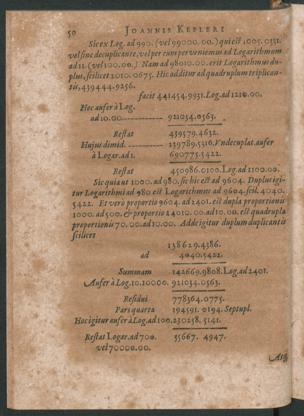 50 JOANNIS KEPLERI
Sic ex Log. ad 990. (vel 99000.00.) qui est 1005.0331.
vel sine decuplicante, vel per cum pervenies ad Logarithmum
ad 11. (vel 1100.00.) Nam ad 98010.00. erit Logarithmus du-
plus, scilicet 2010.0675. Hic additur ad quadruplum triplican-
tis, 439444.9256.
facit 441454.9931. Log. ad 1210.00.
Hoc aufer à Log.
ad 10.00. 921034.0563.
Restat 479579.4632.
Hujus dimid. 239789.5316. Unde cuplat. aufer
à Logar. ad 1. 690775.5422.
Restat 450986.0100. Log. ad 1100.00.
Sic quia ut 1000. ad 980. sic hic est ad 9604. Duplus igi-
tur Logarithmi ad 980 est Logarithmus ad 9604. scil. 4040.
5422. Et verò proportio 9604. ad 2401. est dupla proportionis
1000. ad 500. & proportio 24010.00 ad 10.00. est quadrupla
proportionis 70.00. ad 10.00. Adde igitur duplum duplicantis
scilicet
138629.4386.
ad 4040.5422.
Summam 142669.9808. Log. ad 2401.
Aufer à Log. 10.10000. 921034.0563.
Residui 778364.0775.
Pars quarta 194591.0194. Septupl.
Hoc igitur aufer à Log. ad 100. 230258.5141.
Restat Logar. ad 700. 35667.4947.
vel 70000.00.